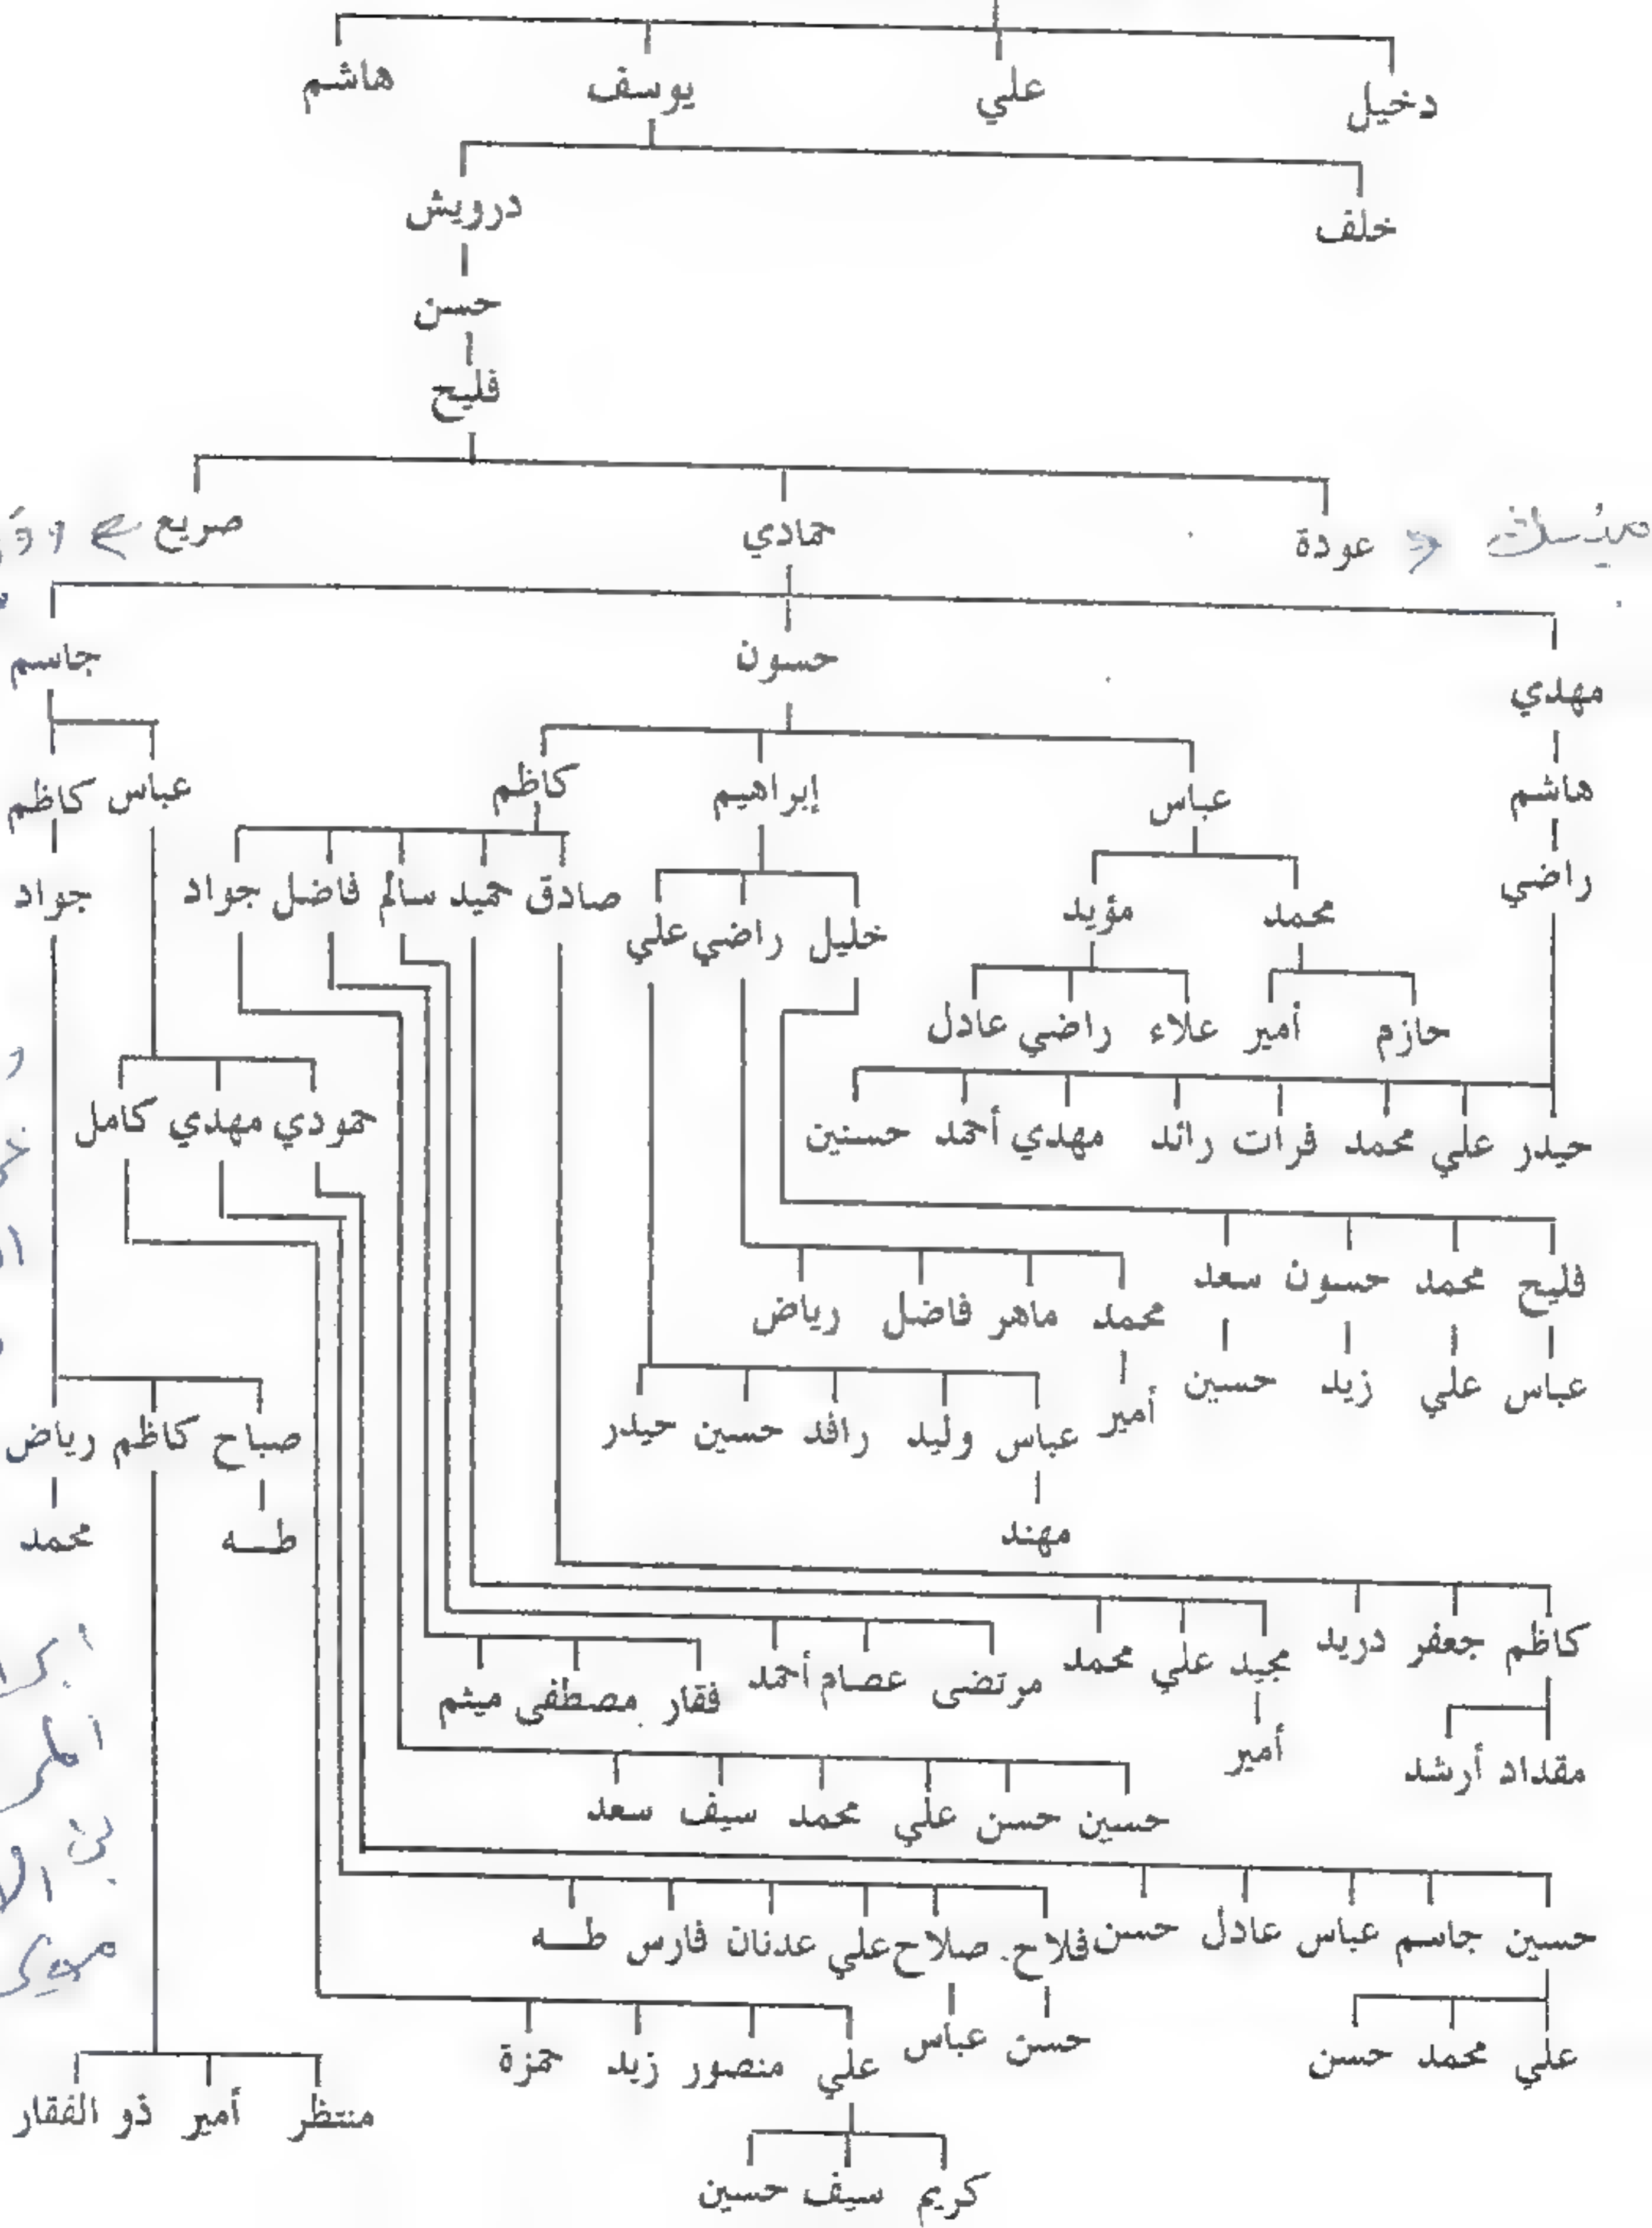 دخيل علي يوسف هاشم
خلف درويش
حسن
فليح
عودة حمادي صريع
مهدي حسون جاسم
هاشم عباس إبراهيم كاظم عباس كاظم
راضي محمد مؤيد خليل راضي علي صادق حميد سالم فاضل جواد جواد
حازم أمير علاء راضي عادل
حيدر علي محمد فرات رائد مهدي أحمد حسنين حمودي مهدي كامل
فليح محمد حسون سعد محمد ماهر فاضل رياض
عباس علي زيد حسين أمير عباس وليد رافد حسين حيدر صباح كاظم رياض
مهند طه محمد
كاظم جعفر دريد مجيد علي محمد مرتضى عصام أحمد فقار مصطفى ميثم
مقداد أرشد أمير
حسين حسن علي محمد سيف سعد
حسين جاسم عباس عادل حسن فلاح صلاح علي عدنان فارس طه
علي محمد حسن حسن عباس علي منصور زيد حمزة
منتظر أمير ذو الفقار
كريم سيف حسين